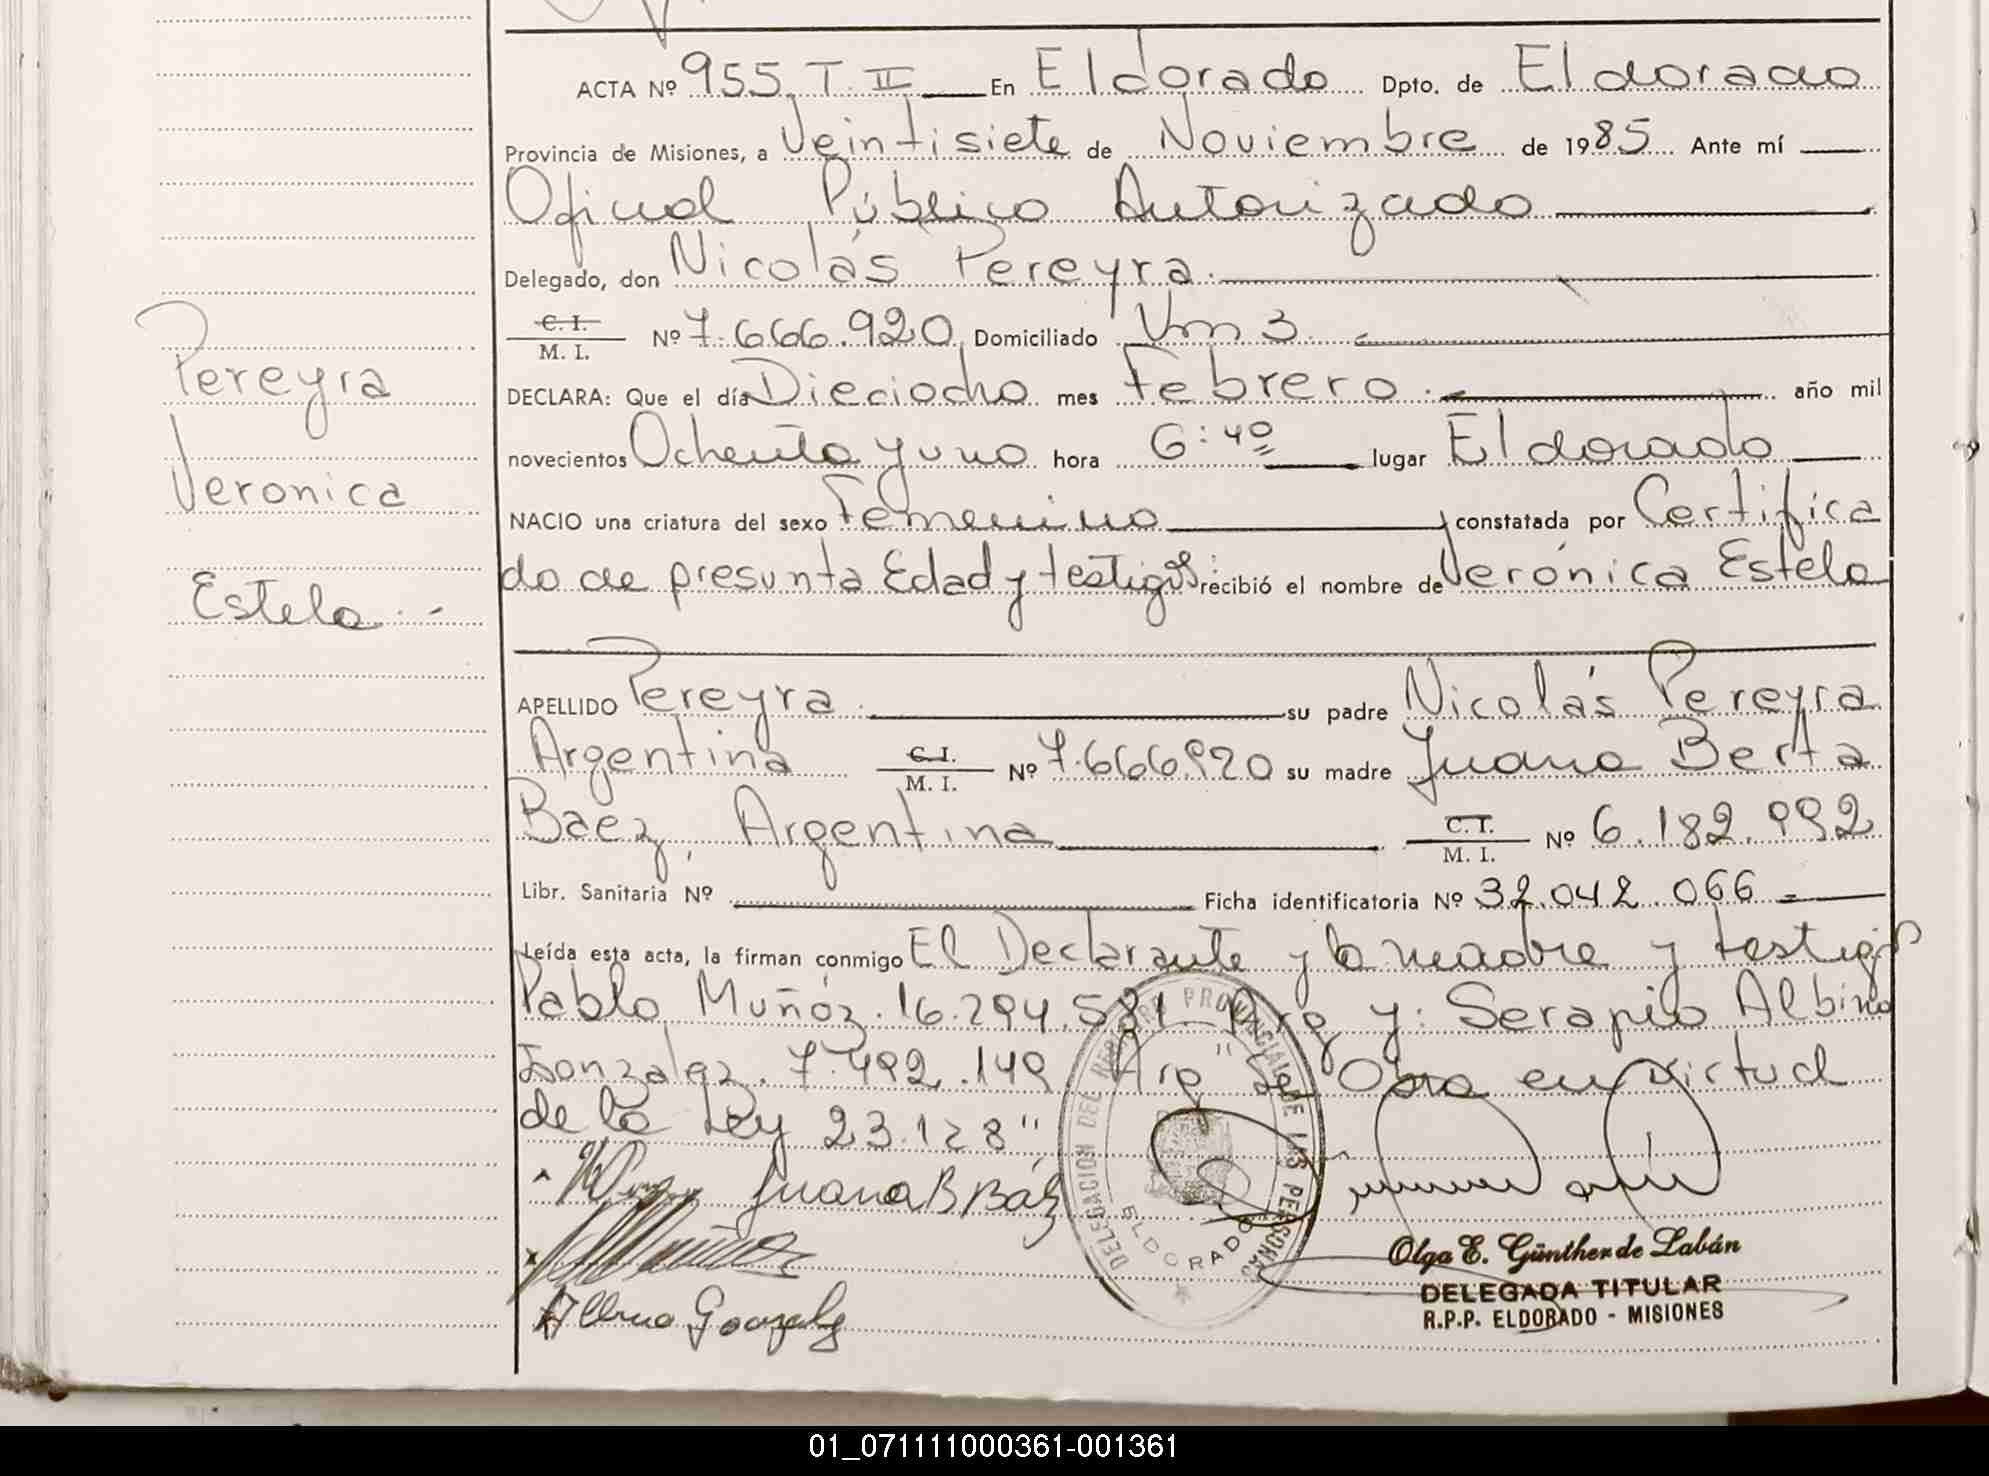 ACTA Nº 955 T II En Eldorado Dpto. de Eldorado
Provincia de Misiones, a Veintisiete de Noviembre de 1985 Ante mí
Oficial Público Autorizado
Delegado, don Nicolás Pereyra.
C. I. / M. I. Nº 7.666.920 Domiciliado Km 3
Pereyra
DECLARA: Que el día Dieciocho mes Febrero año mil
novecientos Ochenta y uno hora 6:40 lugar Eldorado
Veronica
NACIO una criatura del sexo Femenino constatada por Certifica
do de presunta Edad y testigos recibió el nombre de Verónica Estela
Estela.-
APELLIDO Pereyra su padre Nicolás Pereyra
Argentina C. I. / M. I. Nº 7.666.920 su madre Juana Berta
Baez, Argentina C. I. / M. I. Nº 6.182.992
Libr. Sanitaria Nº Ficha identificatoria Nº 32.042.066
Leída esta acta, la firman conmigo El Declarante y la madre y testigos
Pablo Muñóz. 16.294.581 Arg y: Serapio Albino
Gonzalez. 7.492.149 Arg "La Obra en virtud
de la Ley 23.128"
Juana B Báez
Albino Gonzalez
DELEGACION DEL REGISTRO PROVINCIAL DE LAS PERSONAS
ELDORADO
Olga E. Günther de Labán
DELEGADA TITULAR
R.P.P. ELDORADO - MISIONES
01_071111000361-001361